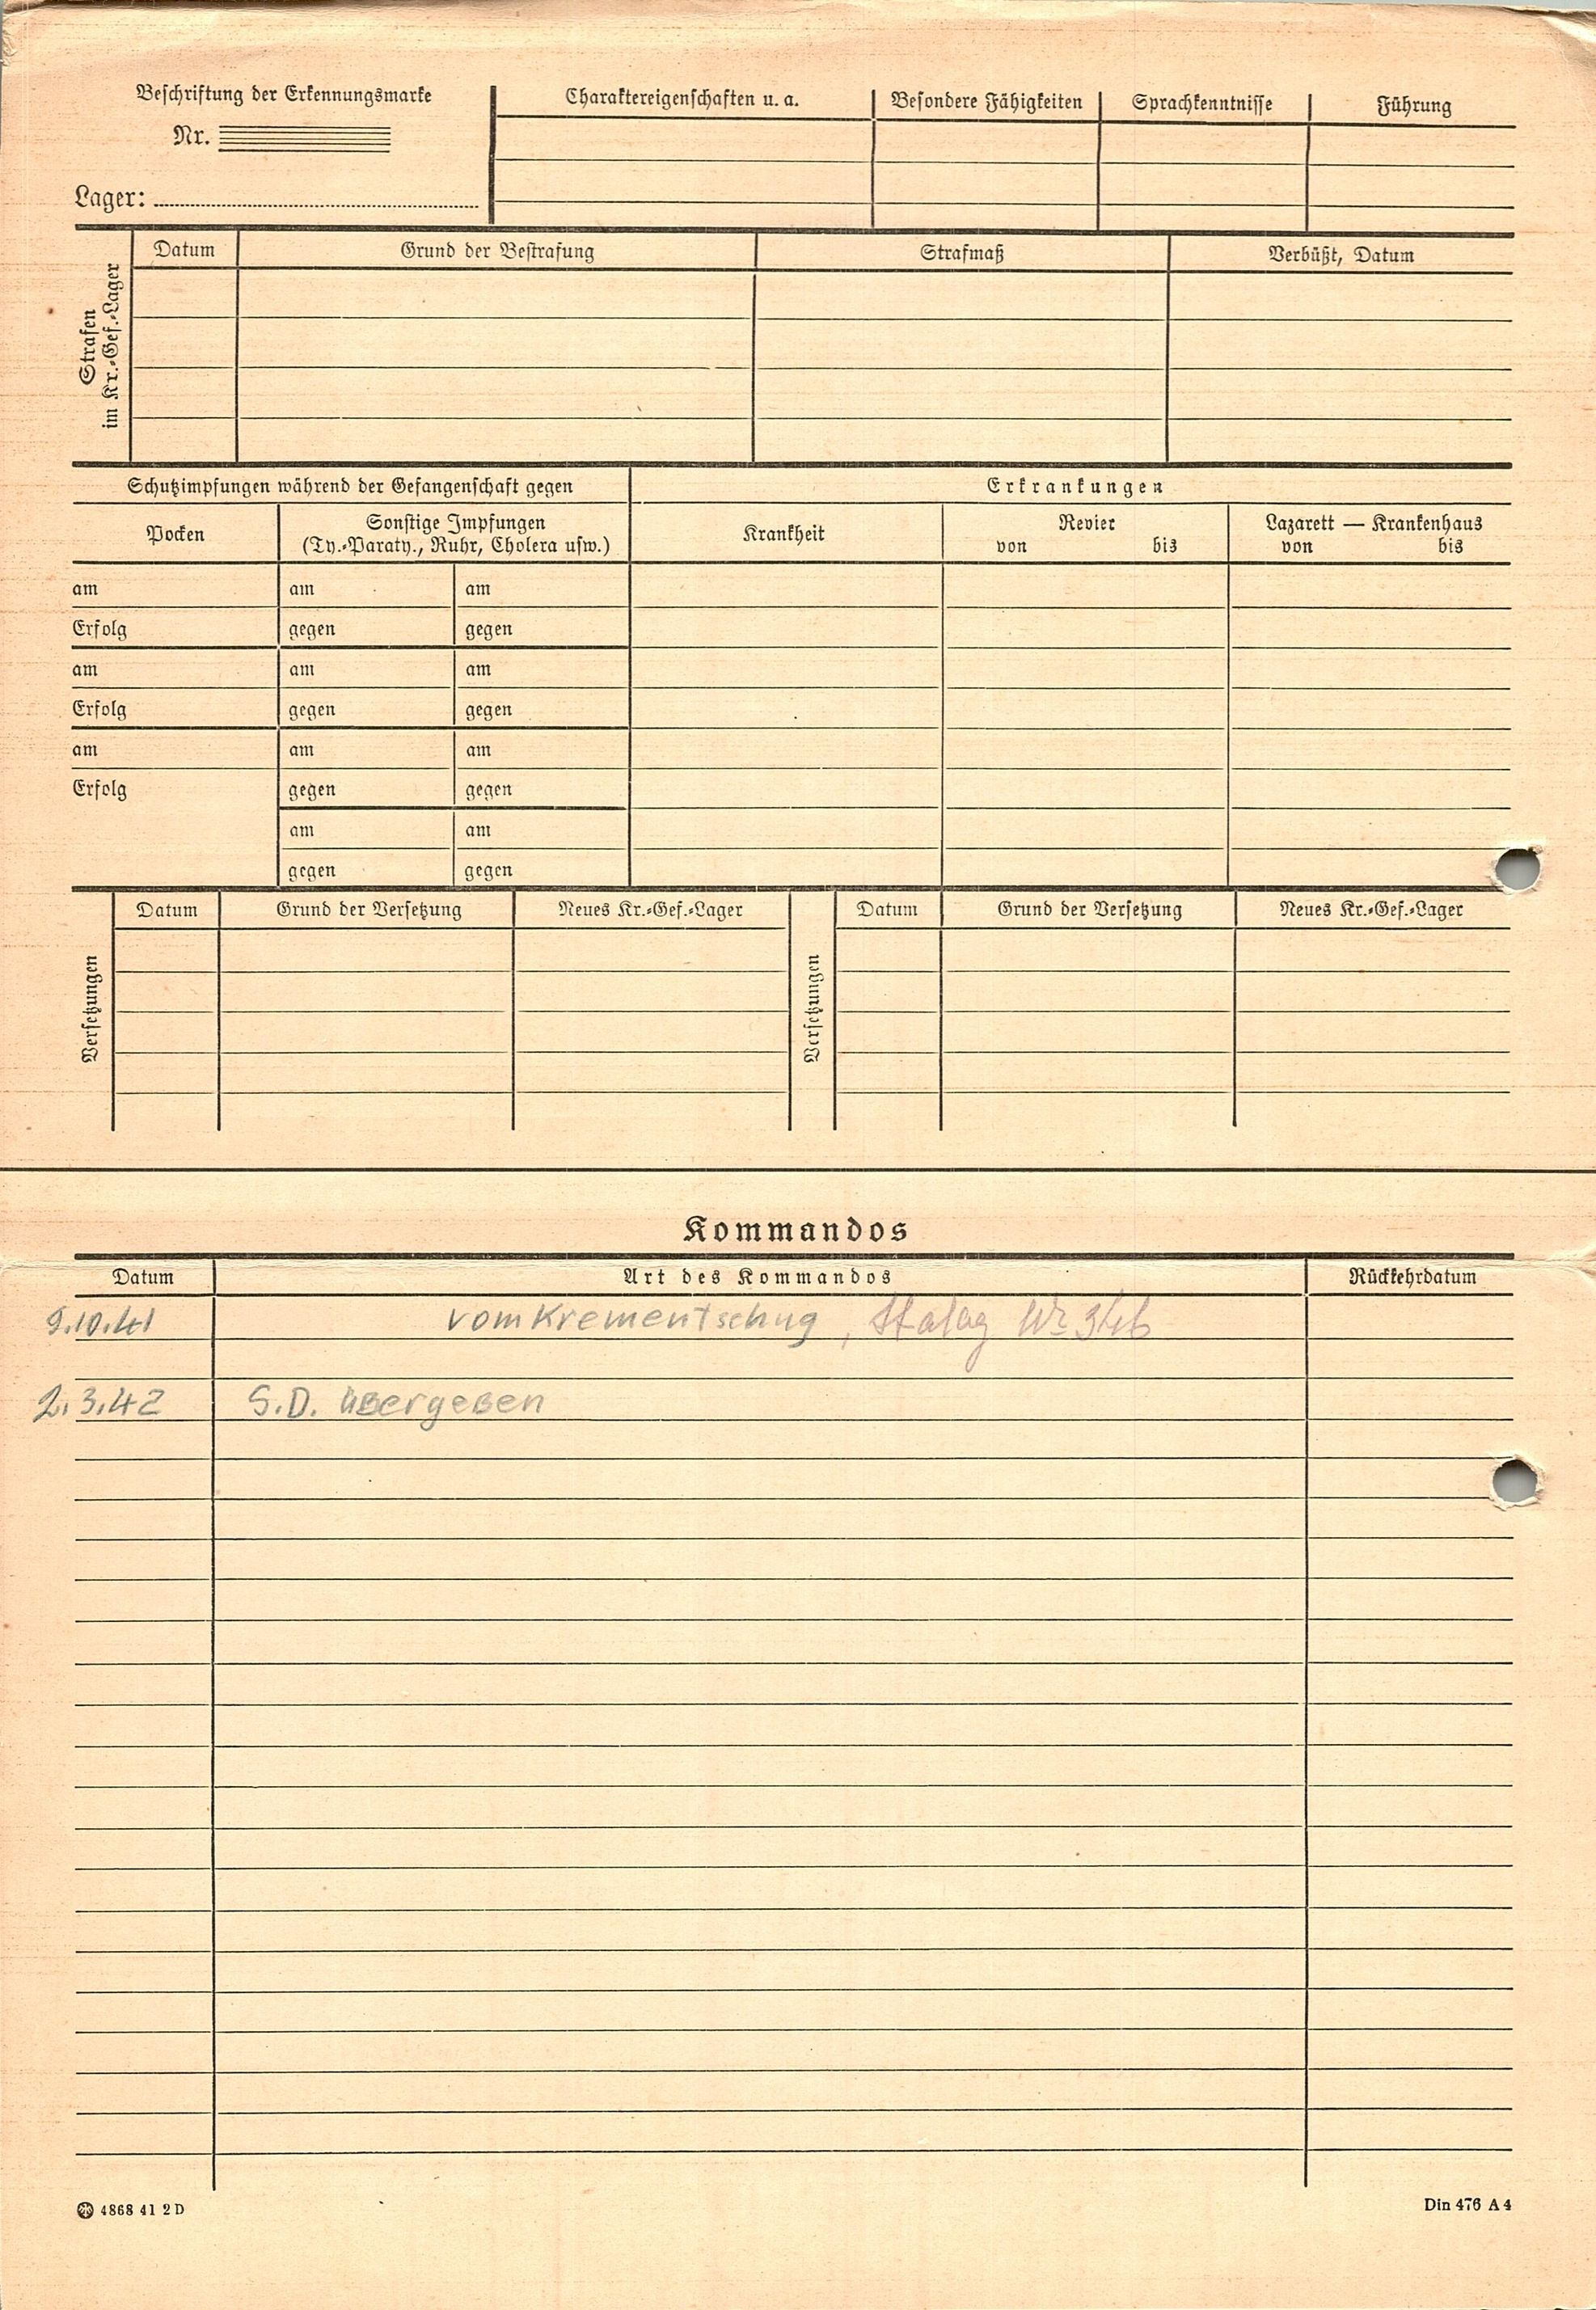 Beschriftung der Erkennungsmarke
Nr.
Lager:
Charaktereigenschaften u. a.
Besondere Fähigkeiten
Sprachkenntnisse
Führung
Strafen
im Kr.-Gef.-Lager
Datum
Grund der Bestrafung
Strafmaß
Verbüßt, Datum
Schutzimpfungen während der Gefangenschaft gegen
Erkrankungen
Pocken
Sonstige Impfungen
(Ty.-Paraty., Ruhr, Cholera usw.)
Krankheit
Revier
von bis
Lazarett — Krankenhaus
von bis
am am am
Erfolg gegen gegen
am am am
Erfolg gegen gegen
am am am
Erfolg gegen gegen
am am
gegen gegen
Versetzungen
Datum Grund der Versetzung Neues Kr.-Gef.-Lager
Versetzungen
Datum Grund der Versetzung Neues Kr.-Gef.-Lager
Kommandos
Datum Art des Kommandos Rückkehrdatum
9.10.41 vom Krementschug, Stalag № 346
2.3.42 S.D. übergeben
4868 41 2 D
Din 476 A 4